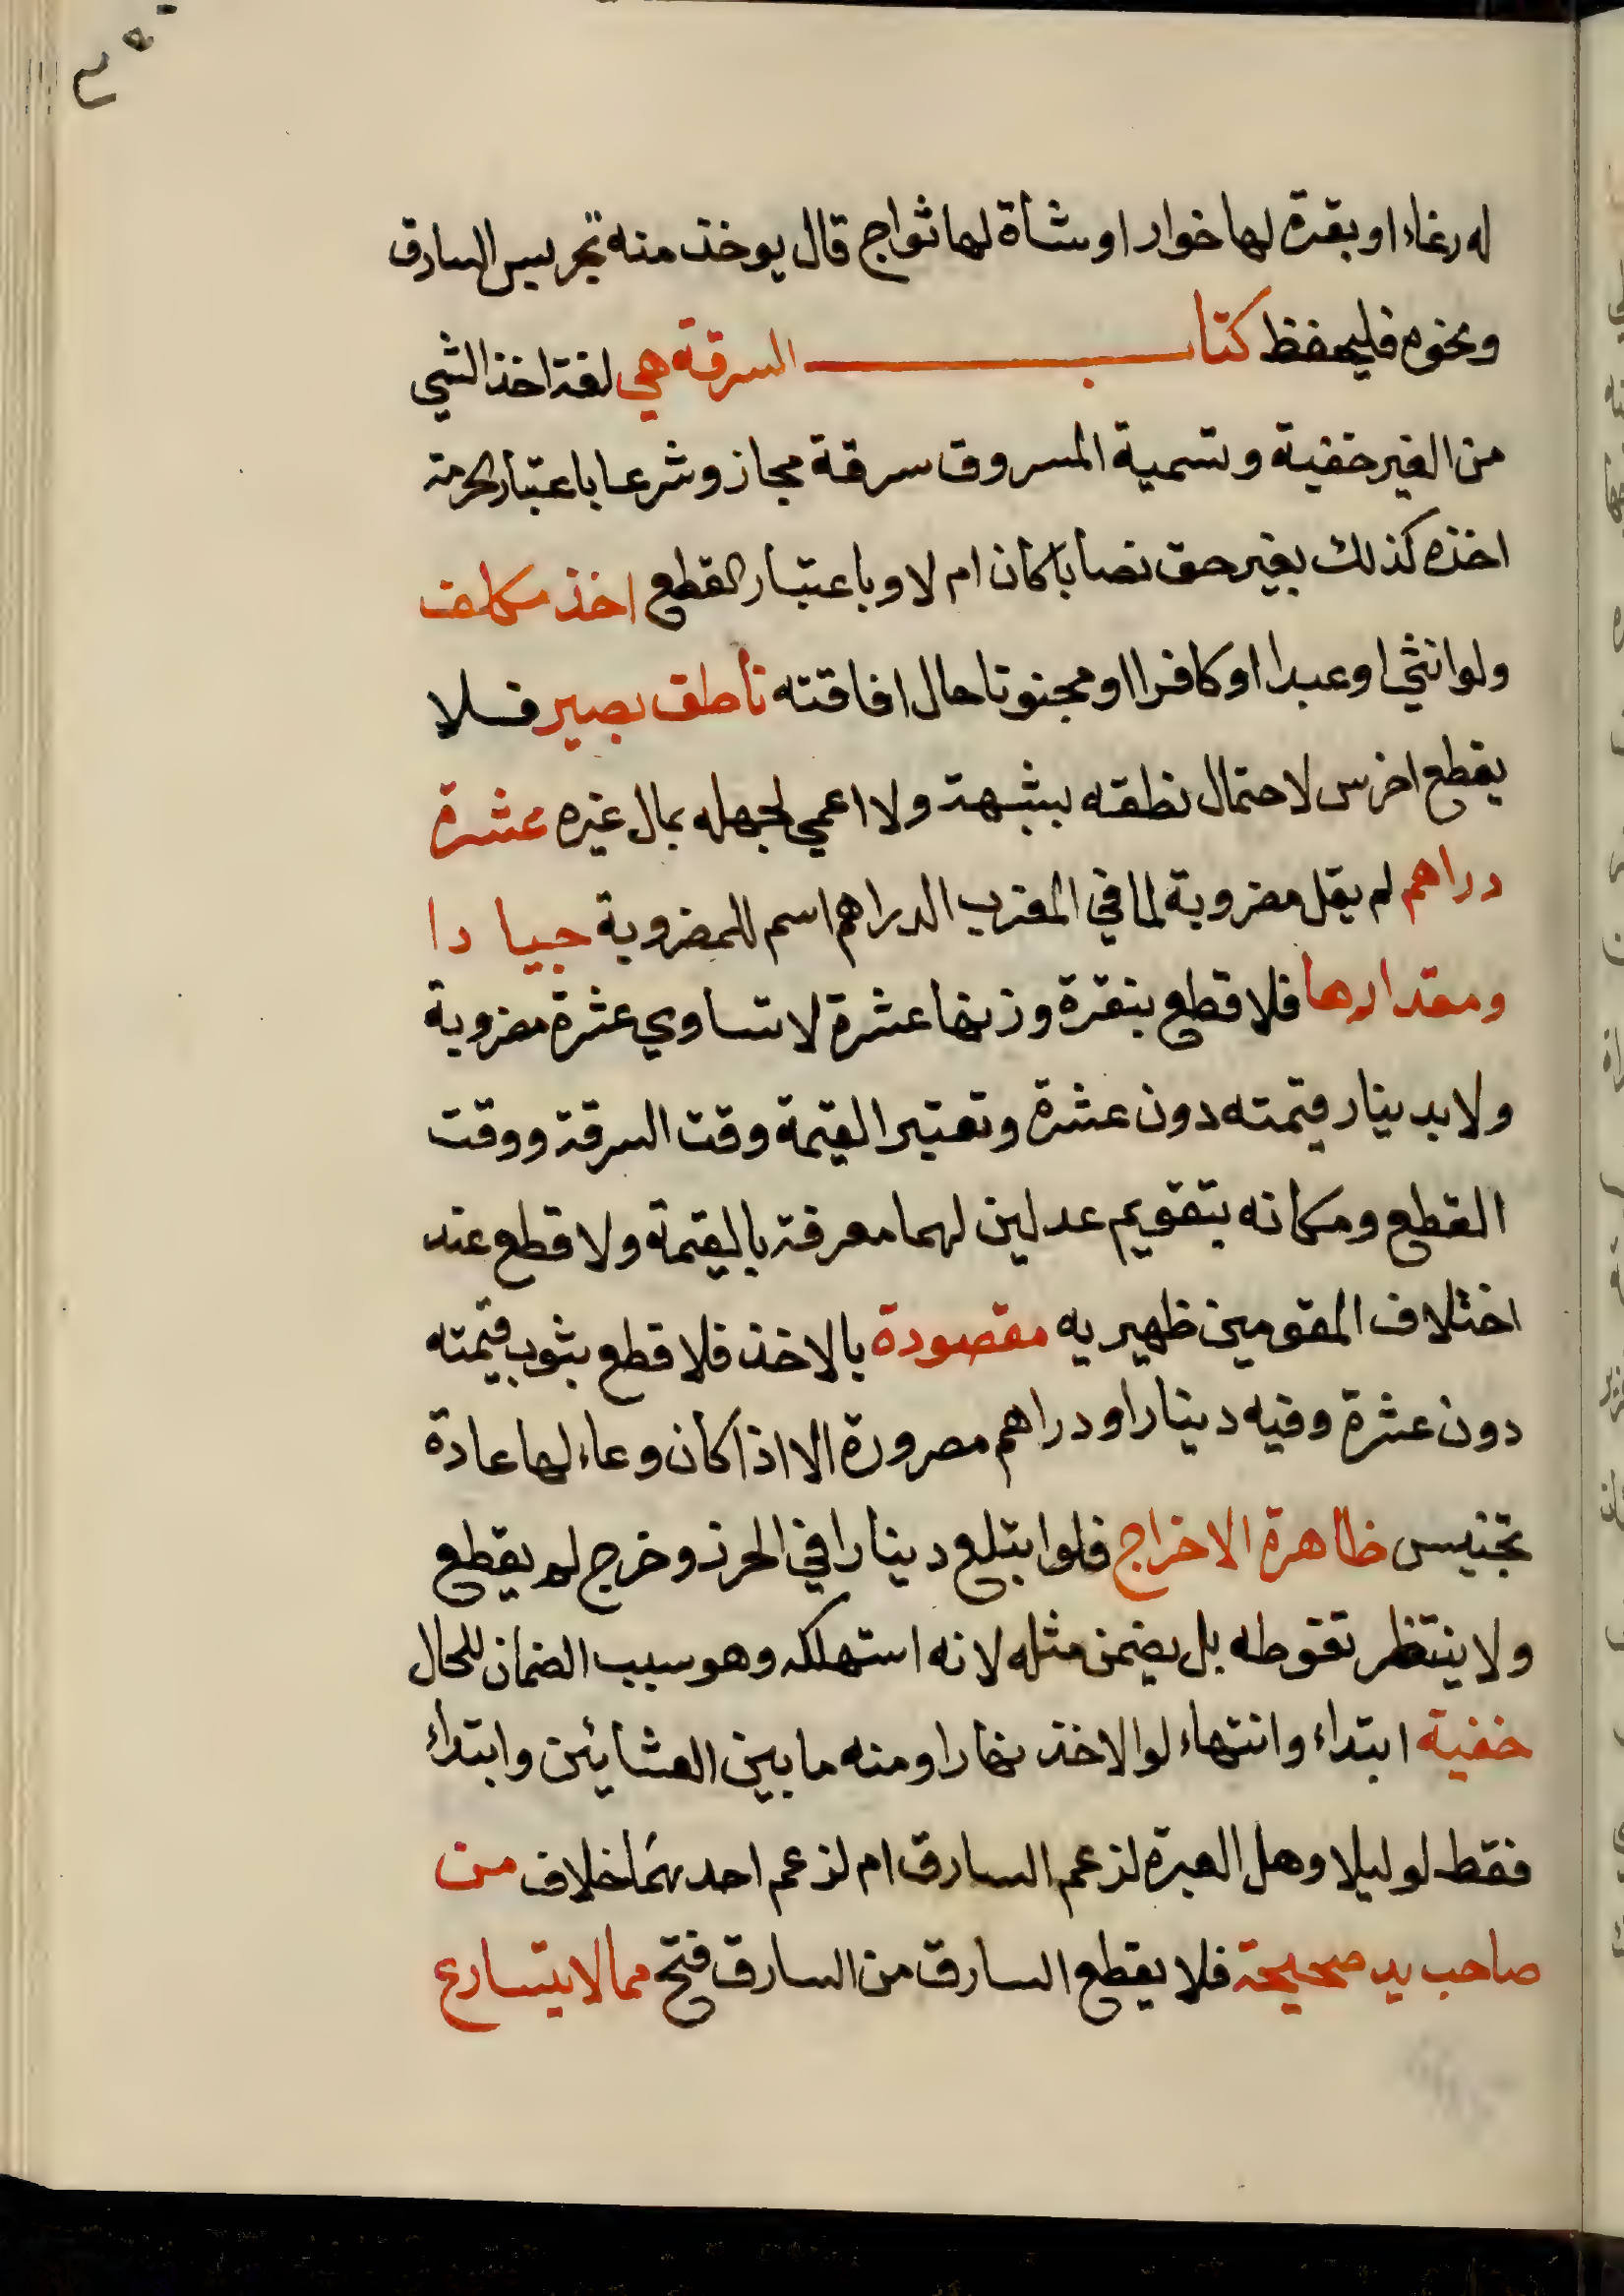 له رغاء او بقرة لها خوار او شاة لها ثواج قال يوخذ منه تجريس السارق
ونحوه فليحفظ كتاب السرقة هي لغة اخذ الشي
من الغير خفية وتسمية المسروق سرقة مجاز وشرعا باعتبار الحرمة
اخذه كذلك بغير حق نصابا كان ام لا وباعتبار القطع اخذ مكلف
ولو انثي او عبدا او كافرا او مجنونا حال افاقته ناطق بصير فلا
يقطع اخرس لاحتمال نطقه بشبهة ولا اعمي لجهله بمال غيره عشرة
دراهم لم يقل مضروبة لما في المغرب الدراهم اسم للمضروبة جيادا
ومقدارها فلا قطع بنقرة وزنها عشرة لا تساوي عشرة مضروبة
ولا بدينار قيمته دون عشرة وتعتبر القيمة وقت السرقة ووقت
القطع ومكانه بتقويم عدلين لهما معرفة بالقيمة ولا قطع عند
اختلاف المقومين ظهيريه مقصودة بالاخذ فلا قطع بثوب قيمته
دون عشرة وفيه دينار او دراهم مصرورة الا اذا كان وعاء لها عادة
تجنيس ظاهرة الاخراج فلو ابتلع دينارا في الحرز وخرج لم يقطع
ولا ينتظر تغوطه بل يضمن مثله لانه استهلكه وهو سبب الضمان للحال
خفية ابتداء وانتهاء لو الاخذ نهارا ومنه ما بين العشائين وابتداء
فقط لو ليلا وهل العبرة لزعم السارق ام لزعم احدهما خلاف من
صاحب يد صحيحة فلا يقطع السارق من السارق فتح مما لا يتسارع